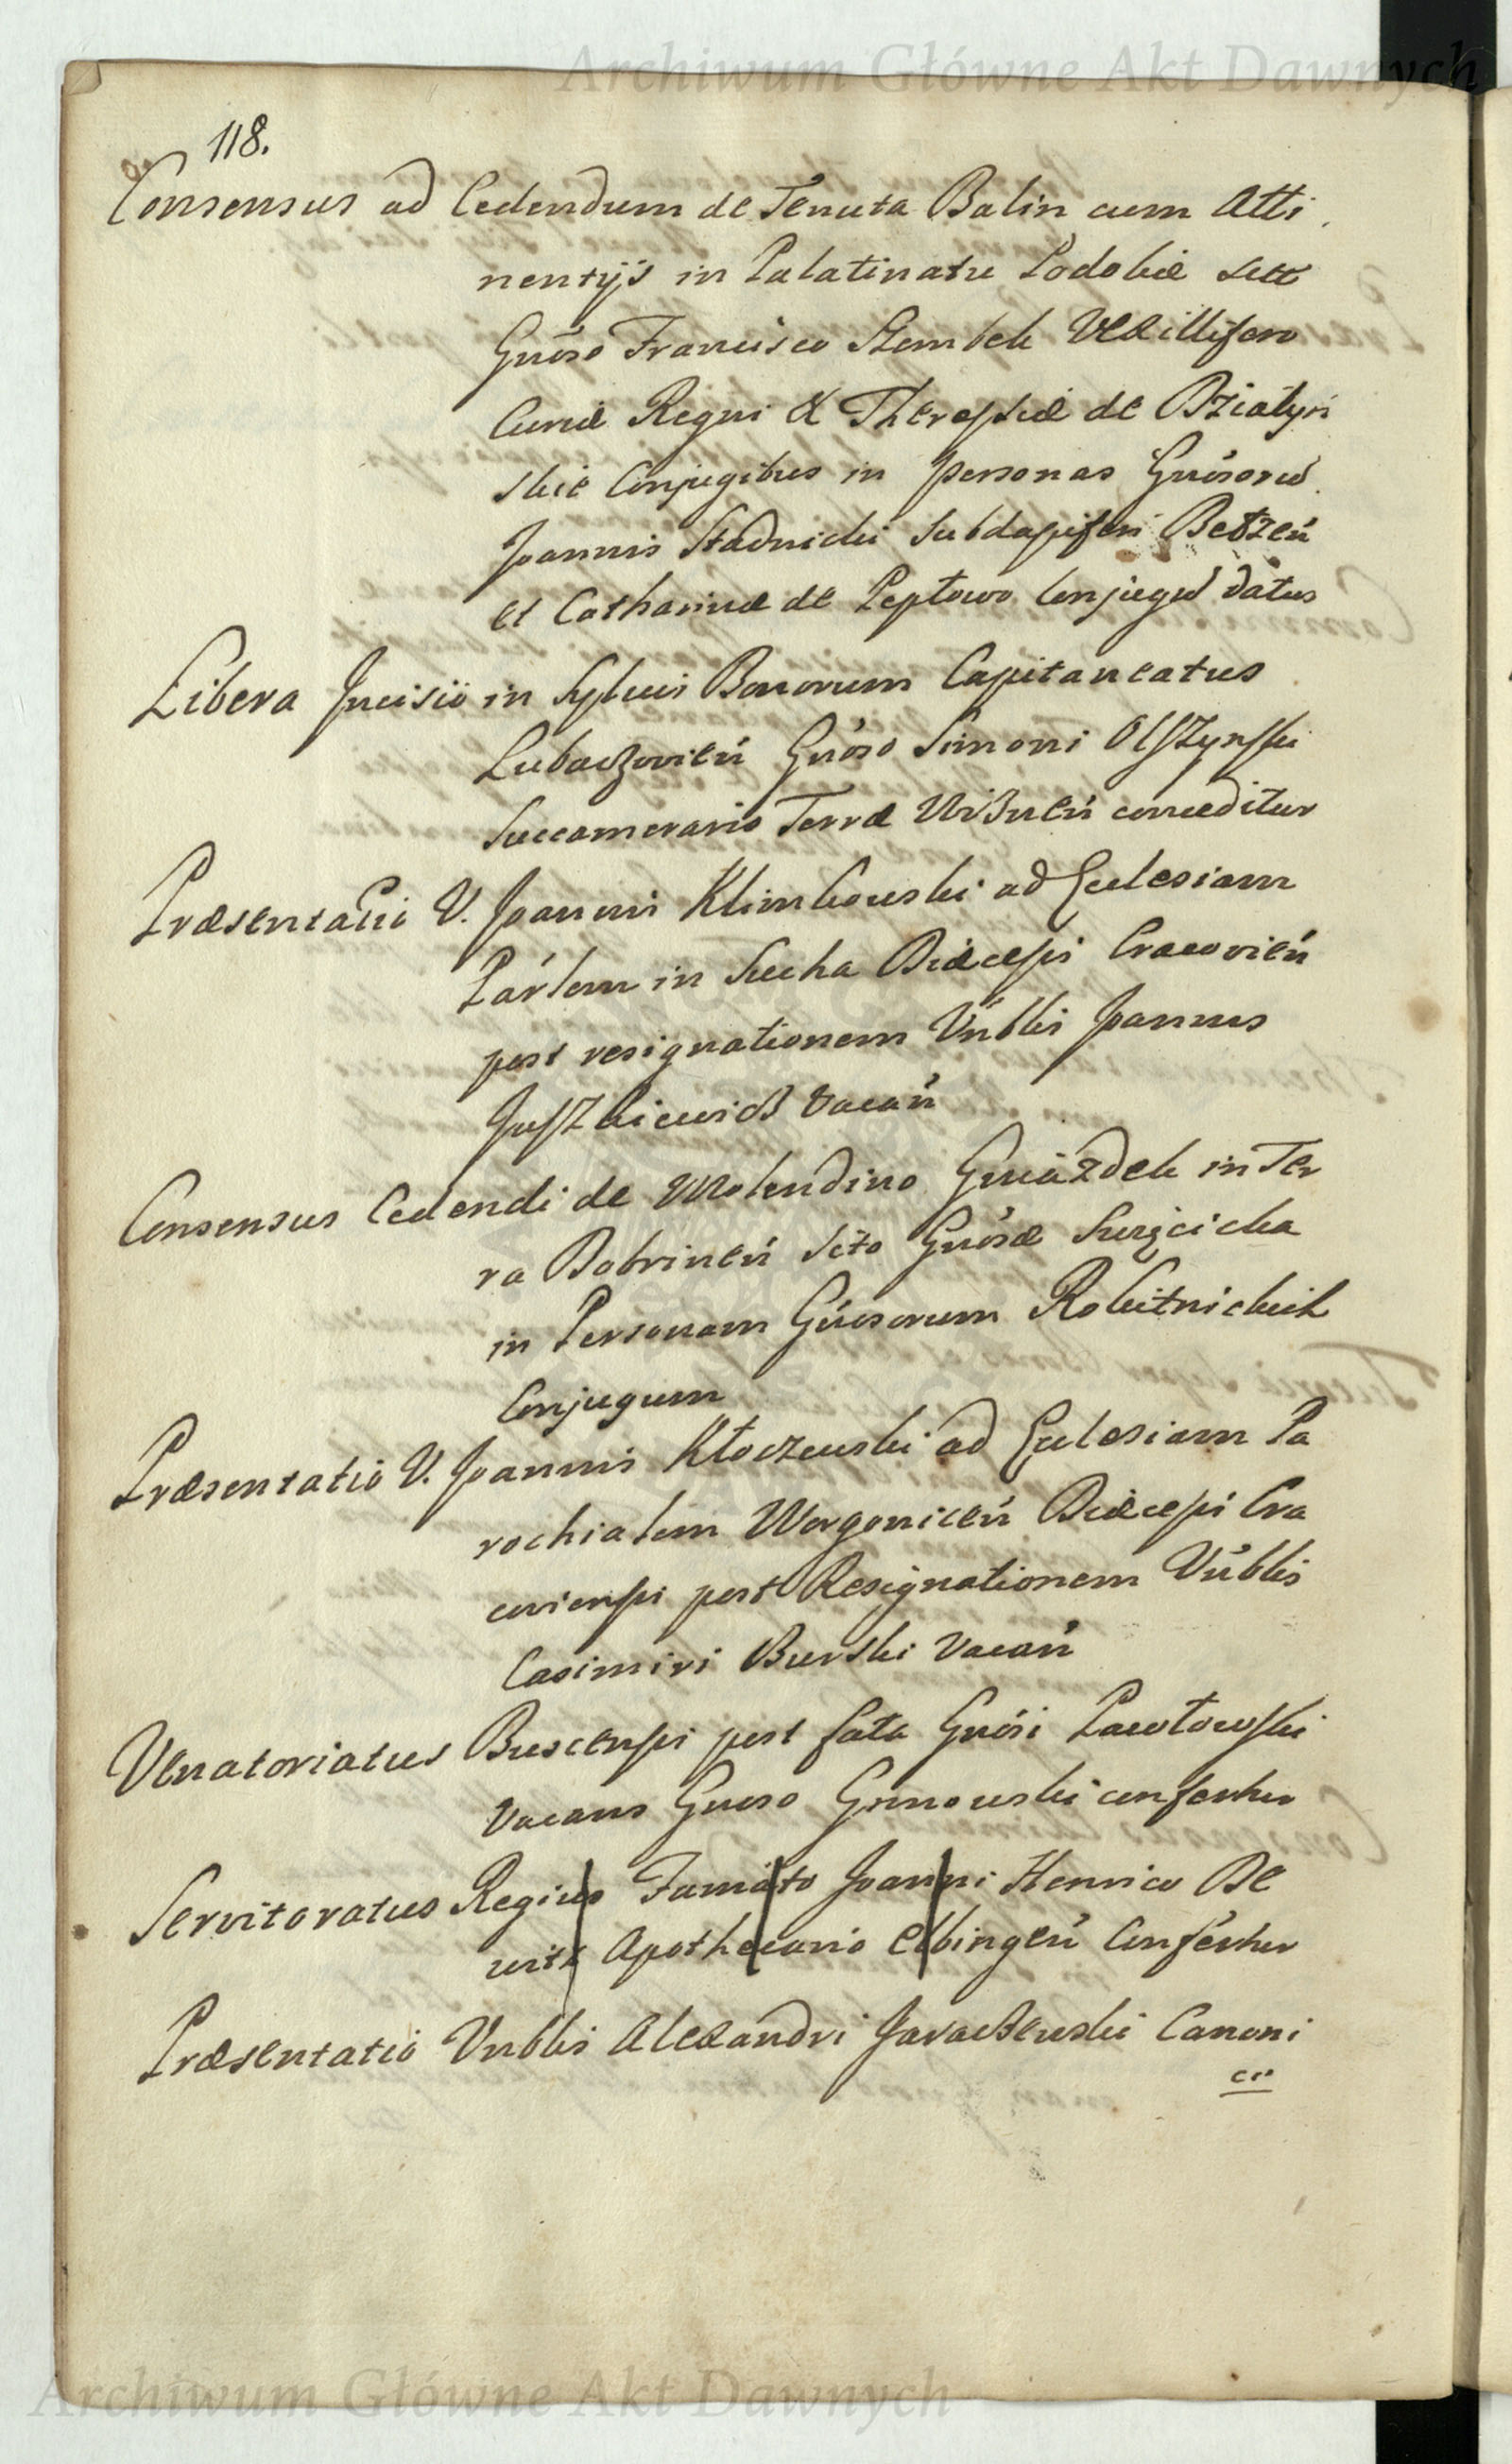 Archiwum Główne Akt Dawnych
118.
Consensus ad Cedendum de Tenuta Balin cum Atti
nentijs in Palatinatu Podoliæ
Gnoso Francisco Szembek Vexillifero
Curiæ Regni & Theressiæ de Dzialyń
skie Conjugibus in personas Gnosorũ
Joannis Stadnicki Subdapiferi Bełzeń
et Catharinæ de Peptowo Conjugũ datus
Libera Incisio in Sylvis Bonorum Capitaneatus
Lubaczovień Gnoso Simoni Olszynski
Succamerario Terræ Visneń conceditur
Præsentatio V. Joannis Klimkowski ad Ecclesiam
Parlem in Sucha Diæcesi Cracovień
post resignationem Vnbblis Joannis
Juszkiewicz vacań
Consensus Cedendi de Molendino Gwiazdek in Ter
ra Dobrineń sito Gnosæ
in Personam Gnosorum Rokitnickich
Conjugum
Præsentatio V. Joannis Kłoczewski ad Ecclesiam Pa
rochialem Worgoniceń Diæcesi Cra
coviensi post Resignationem Vnbblis
Casimiri Burski vacań
Venatoriatus Buscensis post fata Gnosi Pawłowski
vacans Gnoso Grnowski confertur
Servitoratus Regius Famato Joanni Henrico De
witt Apothecario Elbingeń Confertur
Præsentatio Vnbblis Alexandri Jaraczewski Canoni
ci
Archiwum Główne Akt Dawnych